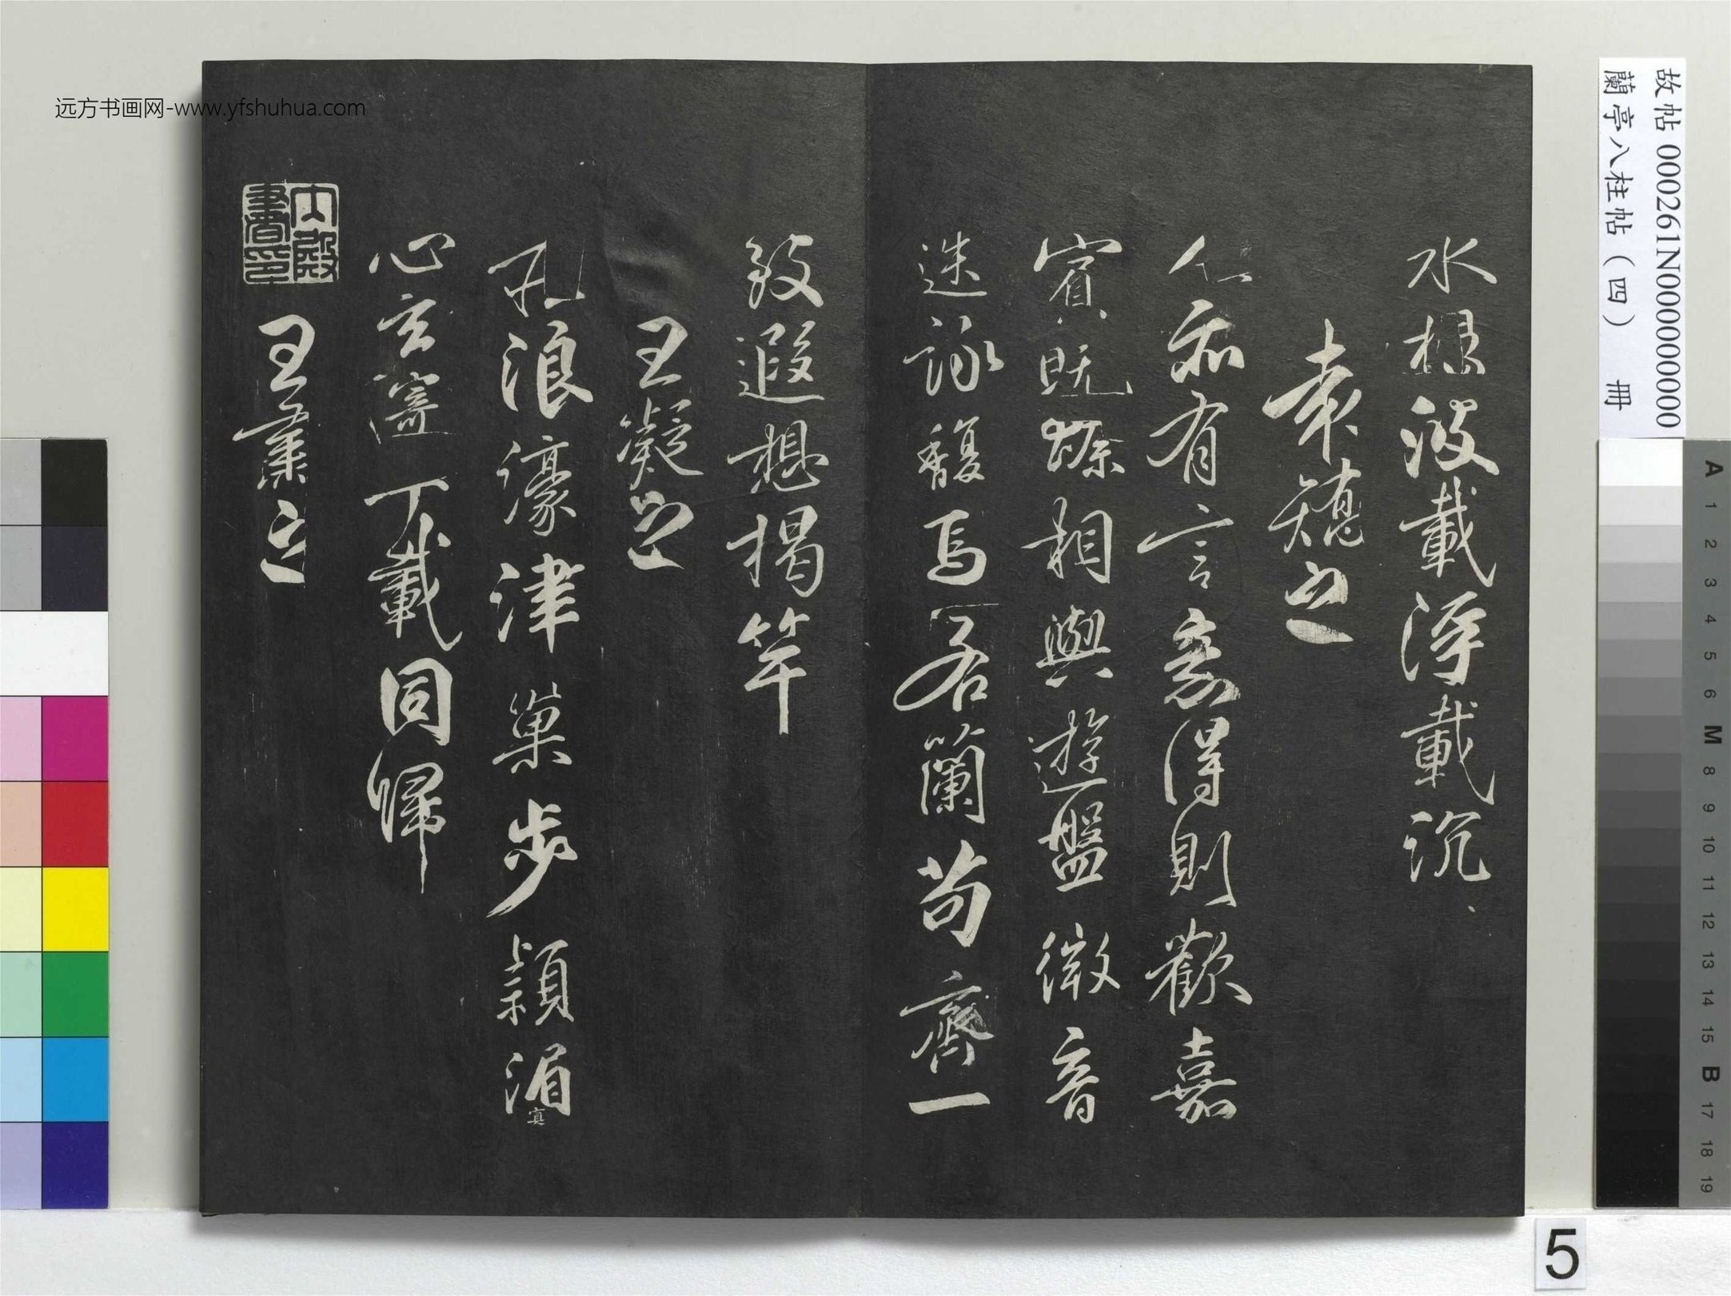 故帖 000261N000000000
蘭亭八柱帖（四） 冊
水想波載浮載沉
袁嶠之
人亦有言意得則歡嘉
賓既臻相與遊盤微音
迭詠馥焉若蘭苟齊一
致遐想揭竿
王凝之
孔浪濠津巢步潁湄
冥
心玄寄千載同歸
王肅之
內殿書印
远方书画网-www.yfshuhua.com
A 1 2 3 4 5 6 M 8 9 10 11 12 13 14 15 B 17 18 19
5